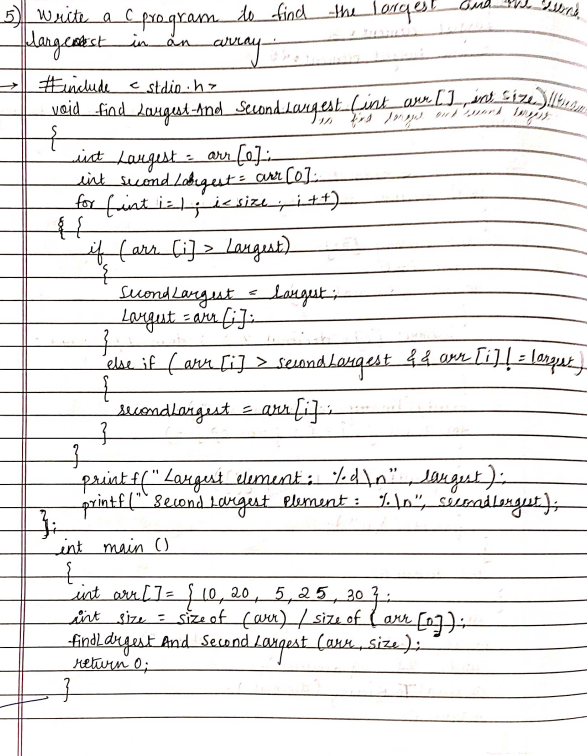 5) Write a C program to find the largest and the
largest in an array.
→ #include <stdio.h>
void find Largest And Second Largest (int arr [] , int size) //
find largest and second largest
{
int Largest = arr [0];
int second largest = arr [0];
for (int i=1 ; i< size ; i++)
{ {
if (arr [i] > Largest)
{
Second Largest = largest ;
Largest = arr [i];
}
else if ( arr [i] > second Largest && arr [i] != largest )
{
second largest = arr [i] ;
}
}
printf(" Largest element : %d \n" , largest );
printf(" Second Largest element : %\n", second largest );
};
int main ()
{
int arr []= { 10, 20, 5, 25, 30 };
int size = size of (arr) / size of ( arr [0]);
find Largest And Second Largest (arr, size);
return 0;
}